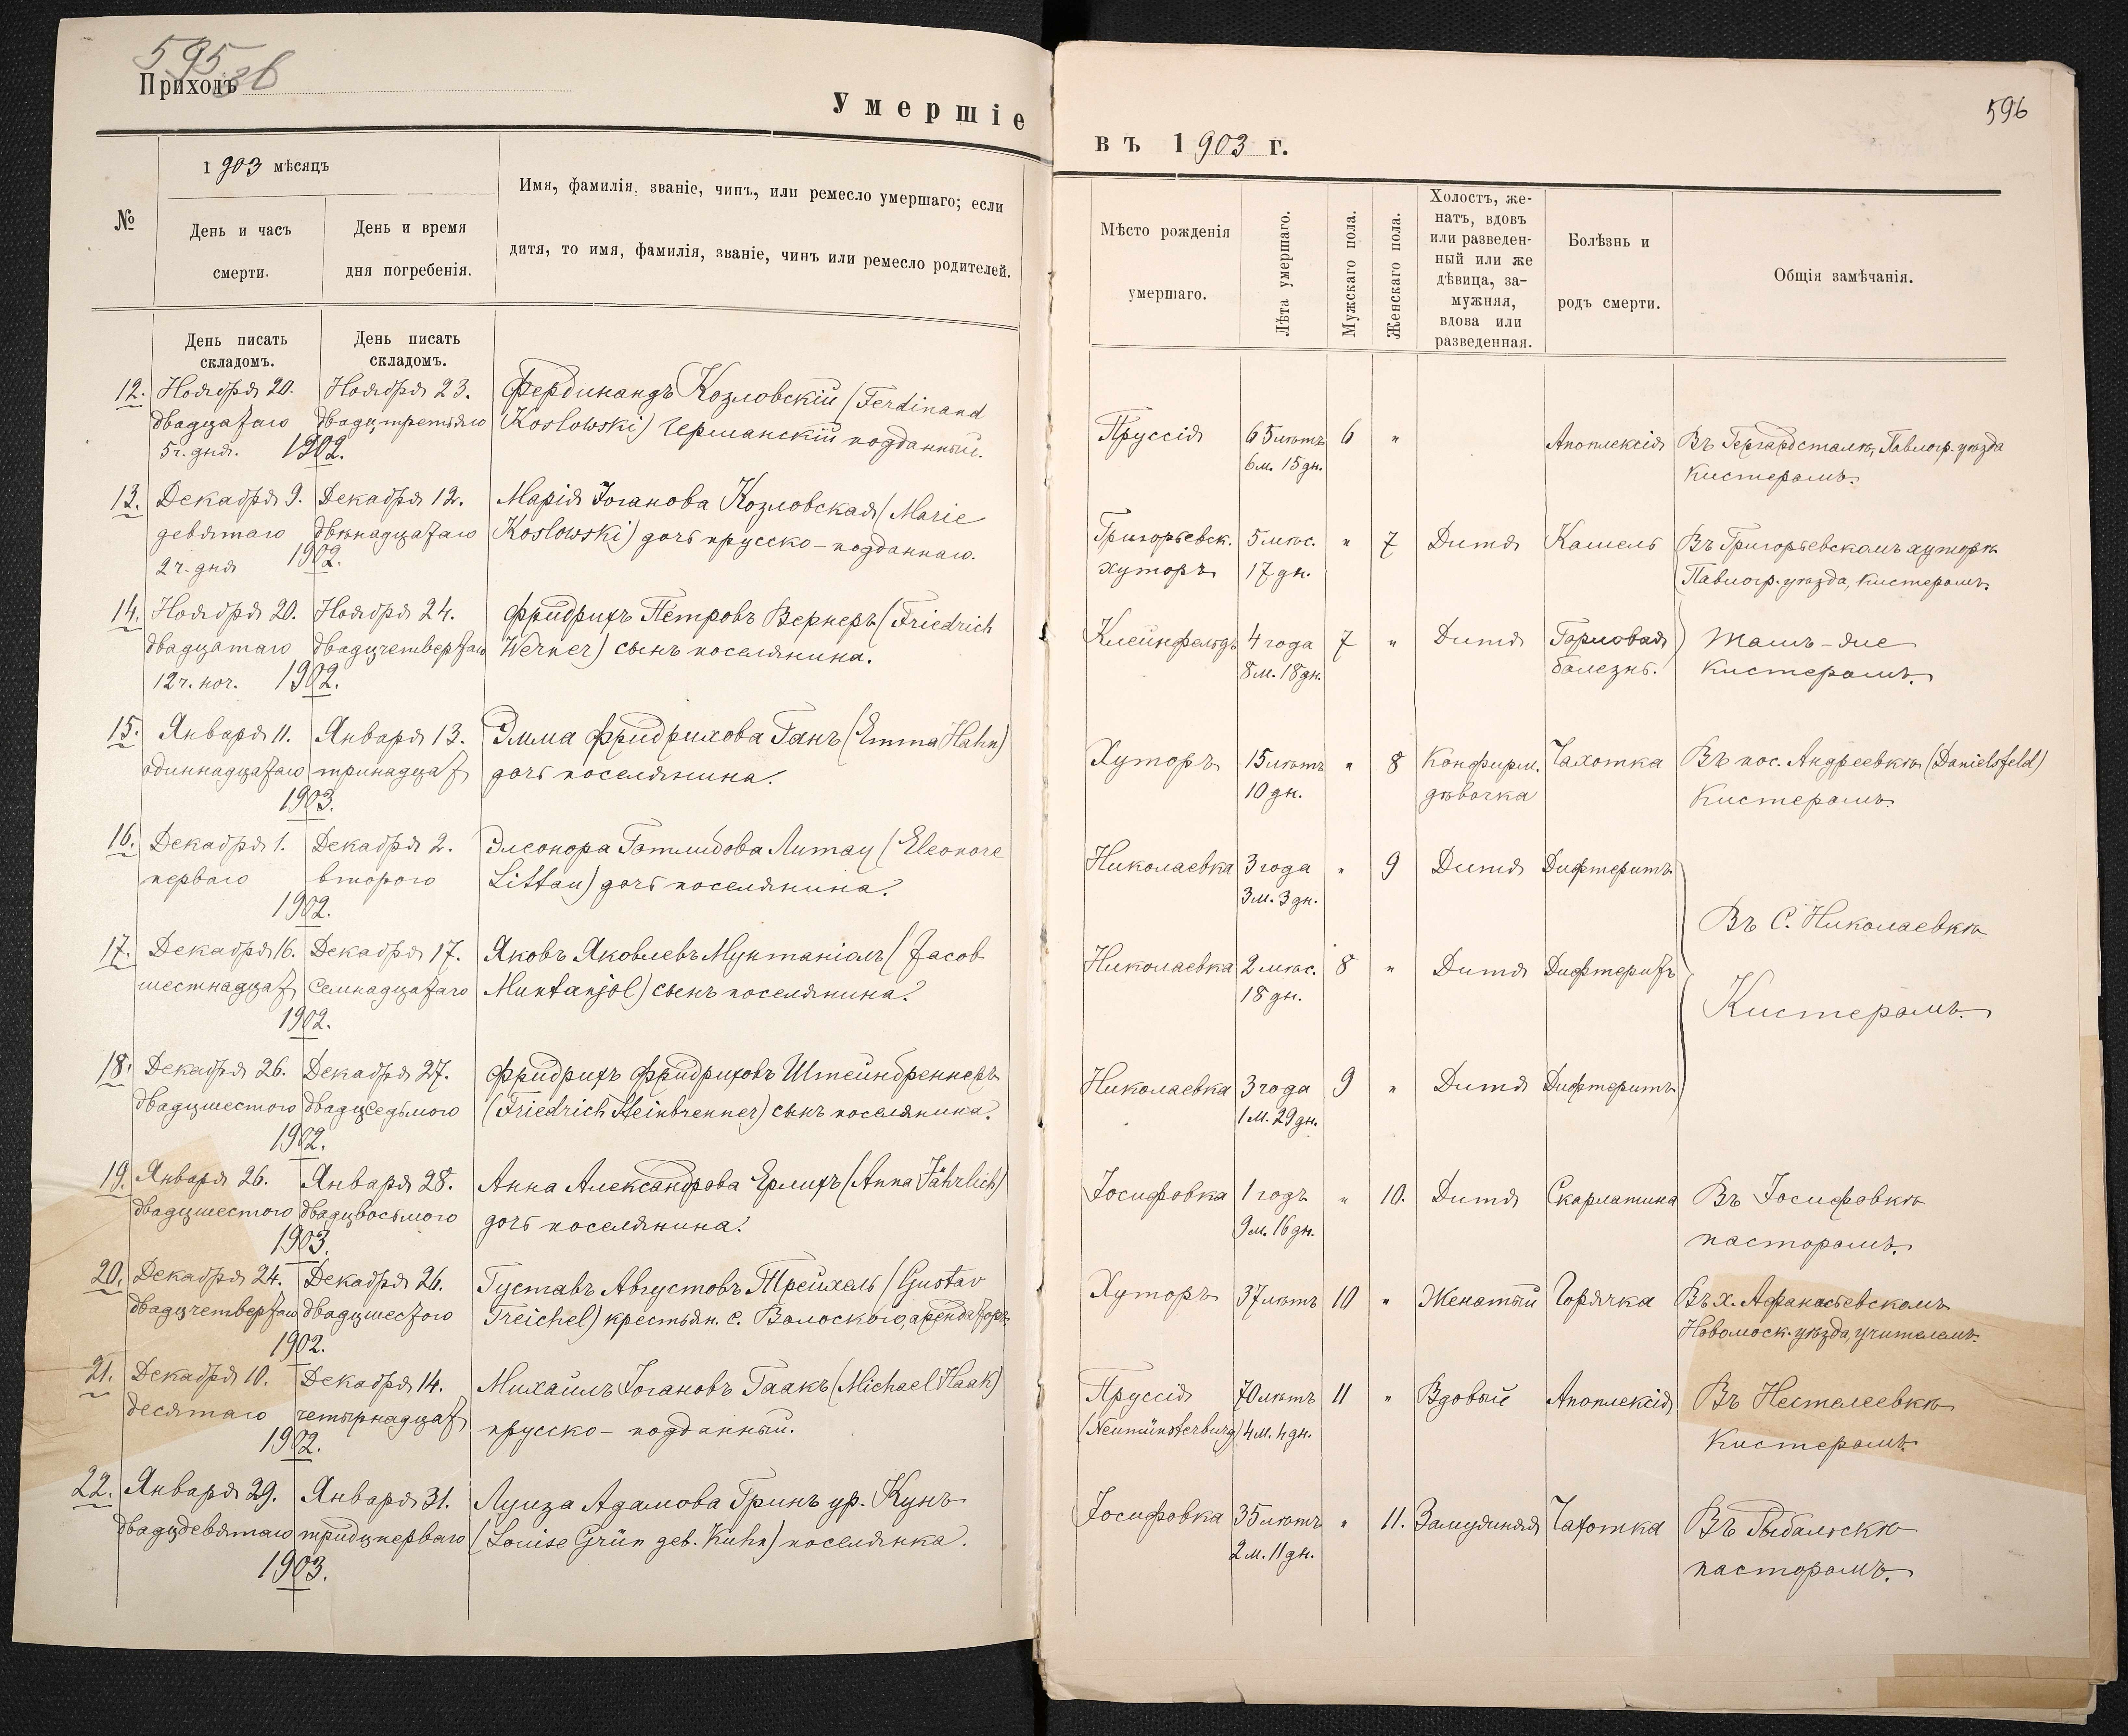 595 зв
Приходъ
Умершіе
№
1903 мѣсяцъ
День и часъ
смерти.
День и время
дня погребенія.
Имя, фамилія, званіе, чинъ, или ремесло умершаго; если
дитя, то имя, фамилія, званіе, чинъ или ремесло родителей.
День писать
складомъ.
День писать
складомъ.
12. Ноября 20. Ноября 23. Фердинандъ Козловскій (Ferdinand
двадцатаго двадцтретьяго Koslowski) Германскій подданный.
5 ч. дня. 1902.
13. Декабря 9. Декабря 12. Марія Іоганова Козловская (Marie
девятаго двѣнадцатаго Koslowski) дочь прусско-подданнаго.
2 ч. дня 1902.
14. Ноября 20. Ноября 24. Фридрихъ Петровъ Вернеръ (Friedrich
двадцатаго двадцчетвертаго Werner) сынъ поселянина.
12 ч. ноч. 1902.
15. Января 11. Января 13. Эмма Фридрихова Ганъ (Emma Hahn)
одиннадцатаго тринадцат дочь поселянина.
1903.
16. Декабря 1. Декабря 2. Элеонора Готлибова Литау (Eleonore
перваго второго Littau) дочь поселянина.
1902.
17. Декабря 16. Декабря 17. Яковъ Яковлевъ Мунтаніолъ (Jacob
шестнадцат семнадцатаго Muntanjol) сынъ поселянина.
1902.
18. Декабря 26. Декабря 27. Фридрихъ Фридриховъ Штейнбреннеръ
двадцшестого двадцседьмого (Friedrich Steinbrenner) сынъ поселянина.
1902.
19. Января 26. Января 28. Анна Александрова Ерлихъ (Anna Jährlich)
двадцшестого двадцвосьмого дочь поселянина.
1903.
20. Декабря 24. Декабря 26. Густавъ Августовъ Трейхель (Gustav
двадцчетвертаго двадцшестого Treichel) крестьян. с. Волоского, арендаторъ.
1902.
21. Декабря 10. Декабря 14. Михаилъ Іогановъ Гаакъ (Michael Haak)
десятаго четырнадцат прусско-подданный.
1902.
22. Января 29. Января 31. Луиза Адамова Гринъ ур. Кунъ
двадцдевятаго тридцперваго (Louise Grün geb. Kuhn) поселянка.
1903.
596
въ 1903 г.
Мѣсто рожденія
умершаго.
Лѣта умершаго.
Мужскаго пола.
Женскаго пола.
Холостъ, же-
натъ, вдовъ
или разведен-
ный или же
дѣвица, за-
мужняя,
вдова или
разведенная.
Болѣзнь и
родъ смерти.
Общія замѣчанія.
Пруссія 65 лѣтъ 6 " Апоплексія Въ Гергардсталѣ, Павлогр. уѣзда
6 м. 15 дн. кистеромъ.
Григорьевск. 5 мѣс. " 7 Дитя Кашель Въ Григорьевскомъ хуторѣ
хуторъ 17 дн. Павлогр. уѣзда, кистеромъ.
Клейнфельдъ 4 года 7 " Дитя Горловая Тамъ-же
8 м. 18 дн. болезнь. кистеромъ.
Хуторъ 15 лѣтъ " 8 Конфирм. Чахотка Въ пос. Андреевкѣ (Danielsfeld)
10 дн. дѣвочка Кистеромъ.
Николаевка 3 года " 9 Дитя Дифтеритъ
3 м. 3 дн.
Въ С. Николаевкѣ
Николаевка 2 мѣс. 8 " Дитя Дифтеритъ
18 дн.
Кистеромъ.
Николаевка 3 года 9 " Дитя Дифтеритъ
1 м. 29 дн.
Іосифовка 1 годъ " 10. Дитя Скарлатина Въ Іосифовкѣ
9 м. 16 дн. пасторомъ.
Хуторъ 37 лѣтъ 10 " Женатый Горячка Въ х. Афанасьевскомъ
Новомоск. уѣзда, учителемъ.
Пруссія 70 лѣтъ 11 " Вдовый Апоплексія Въ Нестелеевкѣ
(Neumünsterburg) 4 м. 4 дн. Кистеромъ.
Іосифовка 35 лѣтъ " 11. Замужняя Чахотка Въ Рыбальскѣ
2 м. 11 дн. пасторомъ.